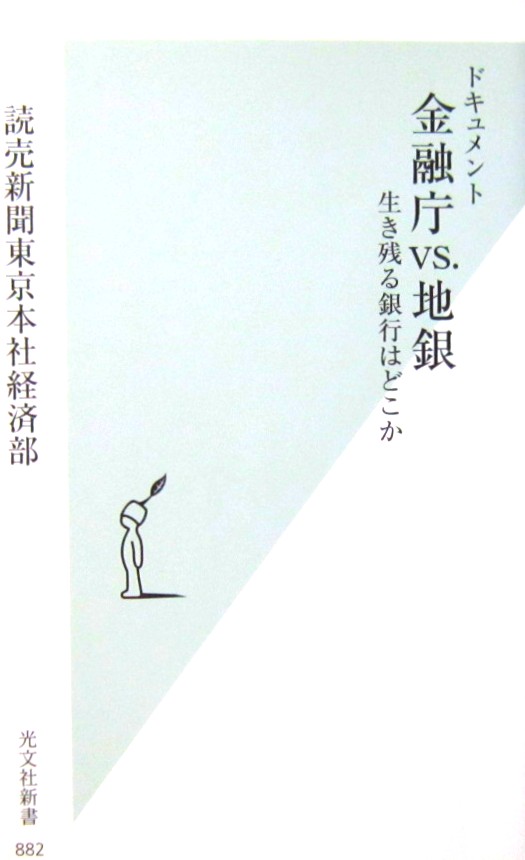 ドキュメント
金融庁vs.地銀
生き残る銀行はどこか
読売新聞東京本社経済部
光文社新書
882